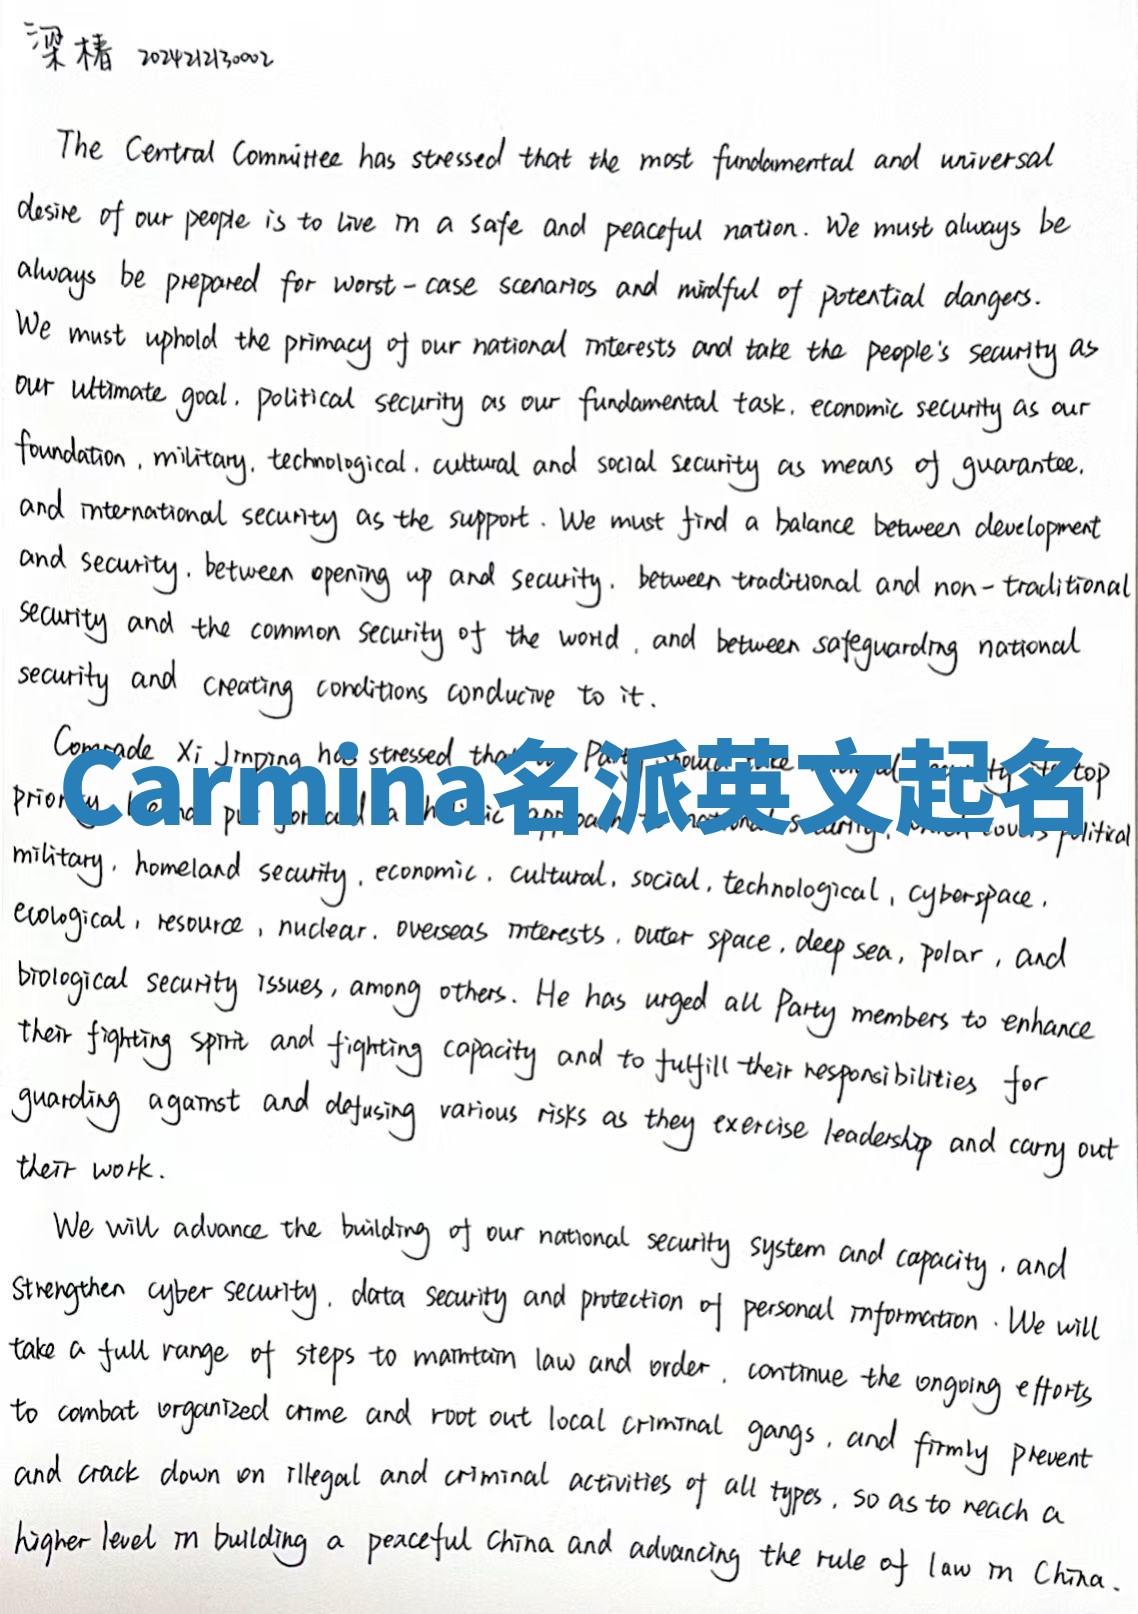 梁椿 2024212130002
The Central Committee has stressed that the most fundamental and universal
desire of our people is to live in a safe and peaceful nation. We must always be
always be prepared for worst-case scenarios and mindful of potential dangers.
We must uphold the primacy of our national interests and take the people's security as
our ultimate goal, political security as our fundamental task, economic security as our
foundation, military, technological, cultural and social security as means of guarantee,
and international security as the support. We must find a balance between development
and security, between opening up and security, between traditional and non-traditional
security and the common security of the world, and between safeguarding national
security and creating conditions conducive to it.
Comrade Xi Jinping has stressed Party top
Carmina名派英文起名
political
military, homeland security, economic, cultural, social, technological, cyberspace,
ecological, resource, nuclear, overseas interests, outer space, deep sea, polar, and
biological security issues, among others. He has urged all Party members to enhance
their fighting spirit and fighting capacity and to fulfill their responsibilities for
guarding against and defusing various risks as they exercise leadership and carry out
their work.
We will advance the building of our national security system and capacity, and
strengthen cyber security, data security and protection of personal information. We will
take a full range of steps to maintain law and order, continue the ongoing efforts
to combat organized crime and root out local criminal gangs, and firmly prevent
and crack down on illegal and criminal activities of all types, so as to reach a
higher level in building a peaceful China and advancing the rule of law in China.